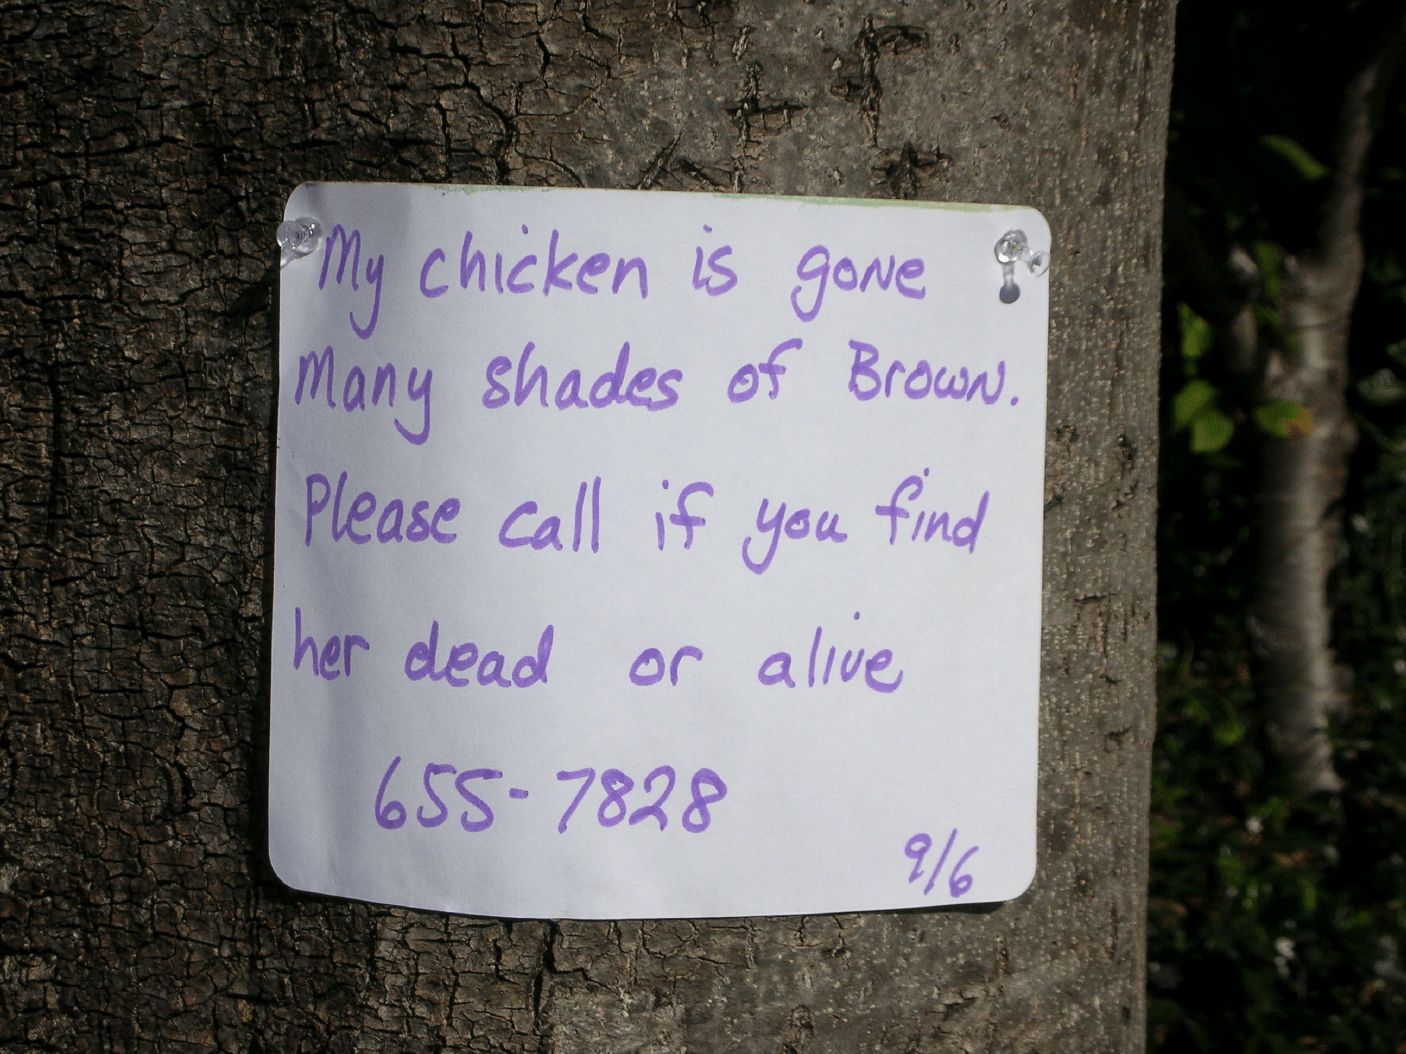 My chicken is gone
Many shades of Brown.
Please call if you find
her dead or alive
655-7828
9/6